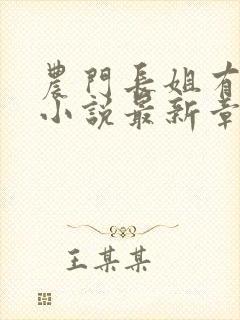 農門長姐有
小説最新章
王某某